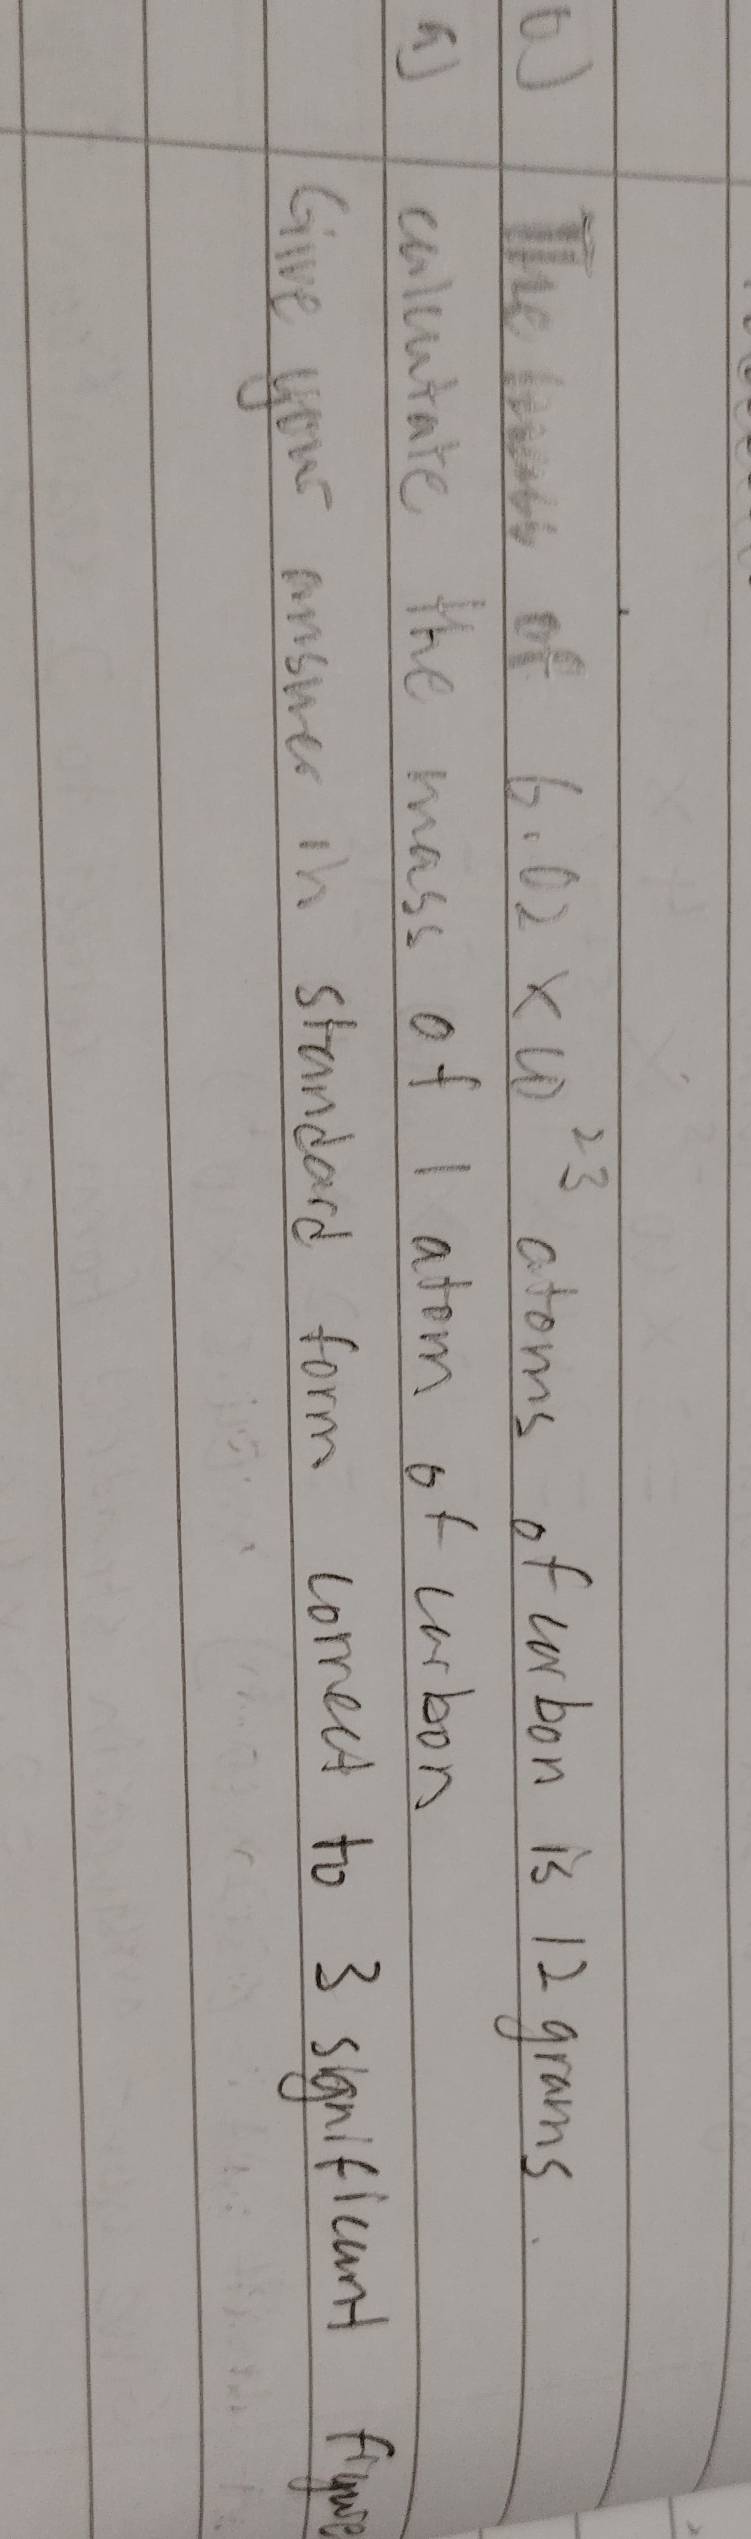 b) The mass of 6.02 × 10²³ atoms of carbon is 12 grams.
a) calculate the mass of 1 atom of carbon
Give your answer in standard form correct to 3 significant figure